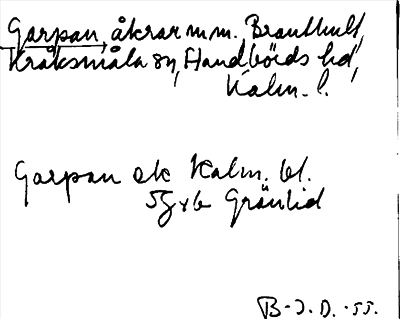 Garpan, åkrar m.m. Branthult,
Kråksmåla sn, Handbörds hd,
Kalm. l.
Garpan ek Kalm. bl.
5g v6 Grönlid
B-J. D. -55.